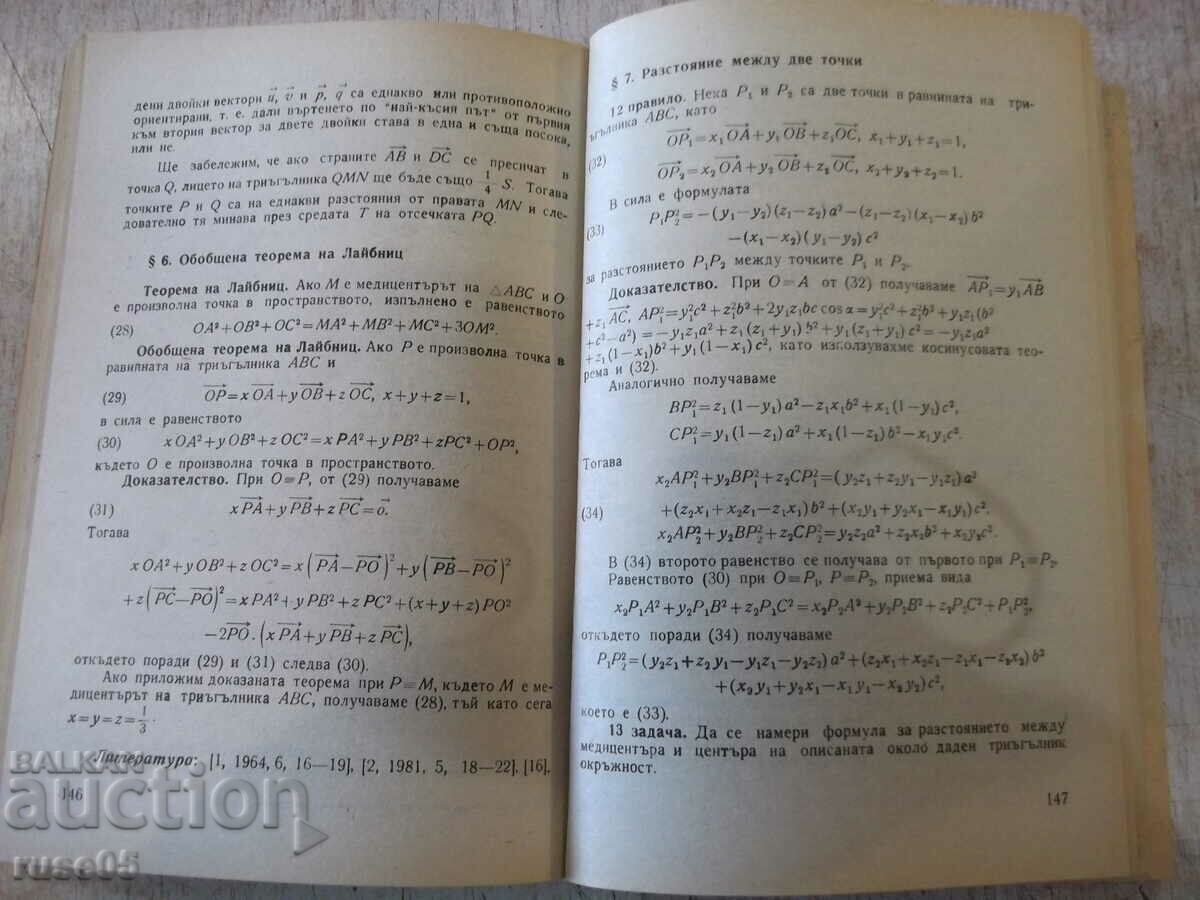 дени двойки вектори u⃗, v⃗ и p⃗, q⃗ са еднакво или противоположно
ориентирани, т. е. дали въртенето по "най-късия път" от първия
към втория вектор за двете двойки става в една и съща посока,
или не.
Ще забележим, че ако страните AB⃗ и DC⃗ се пресичат в
точка Q, лицето на триъгълника QMN ще бъде също 1/4 S. Тогава
точките P и Q са на еднакви разстояния от правата MN и сле-
дователно тя минава през средата T на отсечката PQ.
§ 6. Обобщена теорема на Лайбниц
Теорема на Лайбниц. Ако M е медицентърът на △ABC и O
е произволна точка в пространството, изпълнено е равенството
(28) OA²+OB²+OC²=MA²+MB²+MC²+3OM².
Обобщена теорема на Лайбниц. Ако P е произволна точка в
равнината на триъгълника ABC и
(29) OP⃗=x OA⃗+y OB⃗+z OC⃗, x+y+z=1,
в сила е равенството
(30) x OA²+y OB²+z OC²=x PA²+y PB²+zPC²+OP²,
където O е произволна точка в пространството.
Доказателство. При O=P, от (29) получаваме
(31) x PA⃗+y PB⃗+z PC⃗=o⃗.
Тогава
x OA²+y OB²+z OC²=x (PA⃗−PO⃗)²+y (PB⃗−PO⃗)²
+z (PC⃗−PO⃗)²=x PA²+y PB²+z PC²+(x+y+z) PO²
−2PO⃗. (x PA⃗+y PB⃗+z PC⃗),
откъдето поради (29) и (31) следва (30).
Ако приложим доказаната теорема при P=M, където M е ме-
дицентърът на триъгълника ABC, получаваме (28), тъй като сега
x=y=z=1/3.
Литература: [1, 1964, 6, 16—19], [2, 1981, 5, 18—22], [16].
146
§ 7. Разстояние между две точки
12 правило. Нека P₁ и P₂ са две точки в равнината на три-
ъгълника ABC, като
OP₁⃗=x₁ OA⃗+y₁ OB⃗+z₁OC⃗, x₁+y₁+z₁=1,
(32)
OP₂⃗=x₂ OA⃗+y₂ OB⃗+z₂ OC⃗, x₂+y₂+z₂=1.
В сила е формулата
P₁P₂²=−(y₁−y₂)(z₁−z₂)a²−(z₁−z₂)(x₁−x₂)b²
(33)
−(x₁−x₂)(y₁−y₂)c²
за разстоянието P₁P₂ между точките P₁ и P₂.
Доказателство. При O=A от (32) получаваме AP₁⃗=y₁AB⃗
+z₁ AC⃗, AP₁²=y₁²c²+z₁²b²+2y₁z₁bc cos α=y₁²c²+z₁²b²+y₁z₁(b²
+c²−a²)=−y₁z₁a²+z₁(z₁+y₁)b²+y₁(z₁+y₁)c²=−y₁z₁a²
+z₁(1−x₁)b²+y₁(1−x₁)c², като използувахме косинусовата тео-
рема и (32).
Аналогично получаваме
BP₁²=z₁(1−y₁)a²−z₁x₁b²+x₁(1−y₁)c²,
CP₁²=y₁(1−z₁)a²+x₁(1−z₁)b²−x₁y₁c².
Тогава
x₂AP₁²+y₂BP₁²+z₂CP₁²=(y₂z₁+z₂y₁−y₁z₁)a²
(34) +(z₂x₁+x₂z₁−z₁x₁)b²+(x₂y₁+y₂x₁−x₁y₁)c².
x₂AP₂²+y₂BP₂²+z₂CP₂²=y₂z₂a²+z₂x₂b²+x₂y₂c².
В (34) второто равенство се получава от първото при P₁=P₂.
Равенството (30) при O=P₁, P=P₂, приема вида
x₂P₁A²+y₂P₁B²+z₂P₁C²=x₂P₂A²+y₂P₂B²+z₂P₂C²+P₁P₂²,
откъдето поради (34) получаваме
P₁P₂²=(y₂z₁+z₂y₁−y₁z₁−y₂z₂)a²+(z₂x₁+x₂z₁−z₁x₁−z₂x₂)b²
+(x₂y₁+y₂x₁−x₁y₁−x₂y₂)c²,
което е (33).
13 задача. Да се намери формула за разстоянието между
медицентъра и центъра на описаната около даден триъгълник
окръжност.
147
BALKAN
auction
ruse05